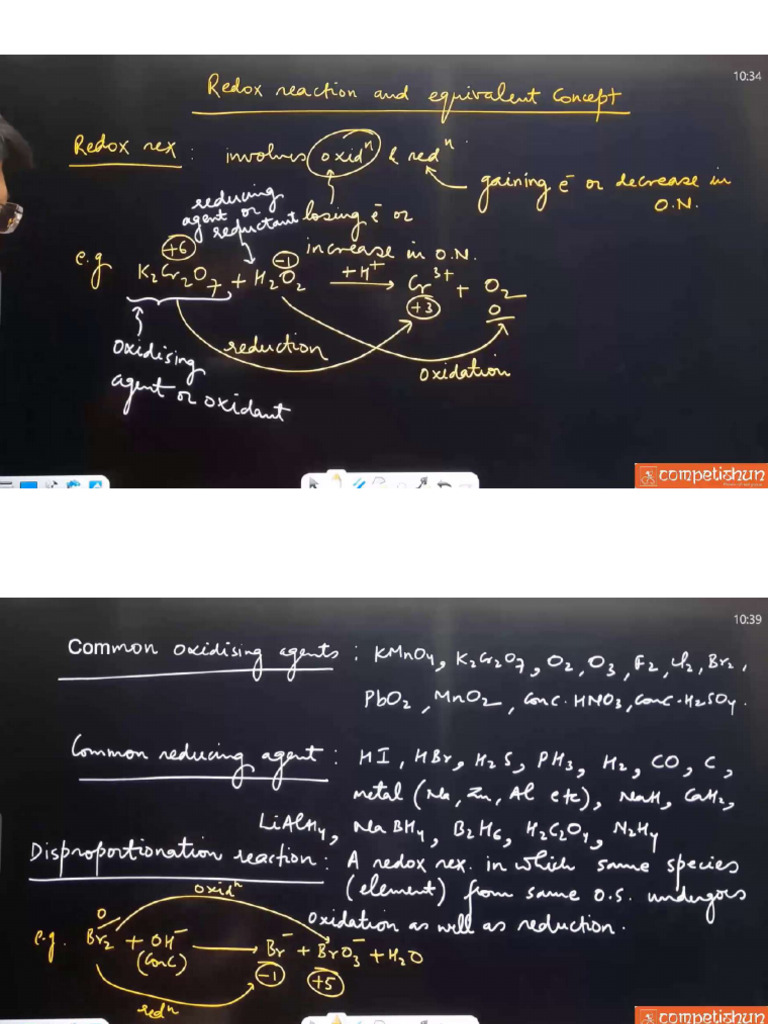 10:34
Redox reaction and equivalent Concept
Redox rex : involves oxidⁿ & redⁿ
gaining e⁻ or decrease in
O.N.
losing e⁻ or
increase in O.N.
reducing
agent or
reductant
e.g
+6
-1
K₂Cr₂O₇ + H₂O₂ +H⁺ → Cr³⁺ + O₂
+3
0
reduction
oxidation
Oxidising
agent or oxidant
competishun
10:39
Common oxidising agents : KMnO₄, K₂Cr₂O₇, O₂, O₃, F₂, Cl₂, Br₂,
PbO₂, MnO₂, Conc. HNO₃, Conc. H₂SO₄.
Common reducing agent : HI, HBr, H₂S, PH₃, H₂, CO, C,
metal (Na, Zn, Al etc), NaH, CaH₂,
LiAlH₄, NaBH₄, B₂H₆, H₂C₂O₄, N₂H₄
Disproportionation reaction : A redox rex. in which same species
(element) from same O.S. undergoes
oxidation as well as reduction.
oxidⁿ
0
e.g. Br₂ + OH⁻ → Br⁻ + BrO₃⁻ + H₂O
(Conc)
-1
+5
redⁿ
competishun